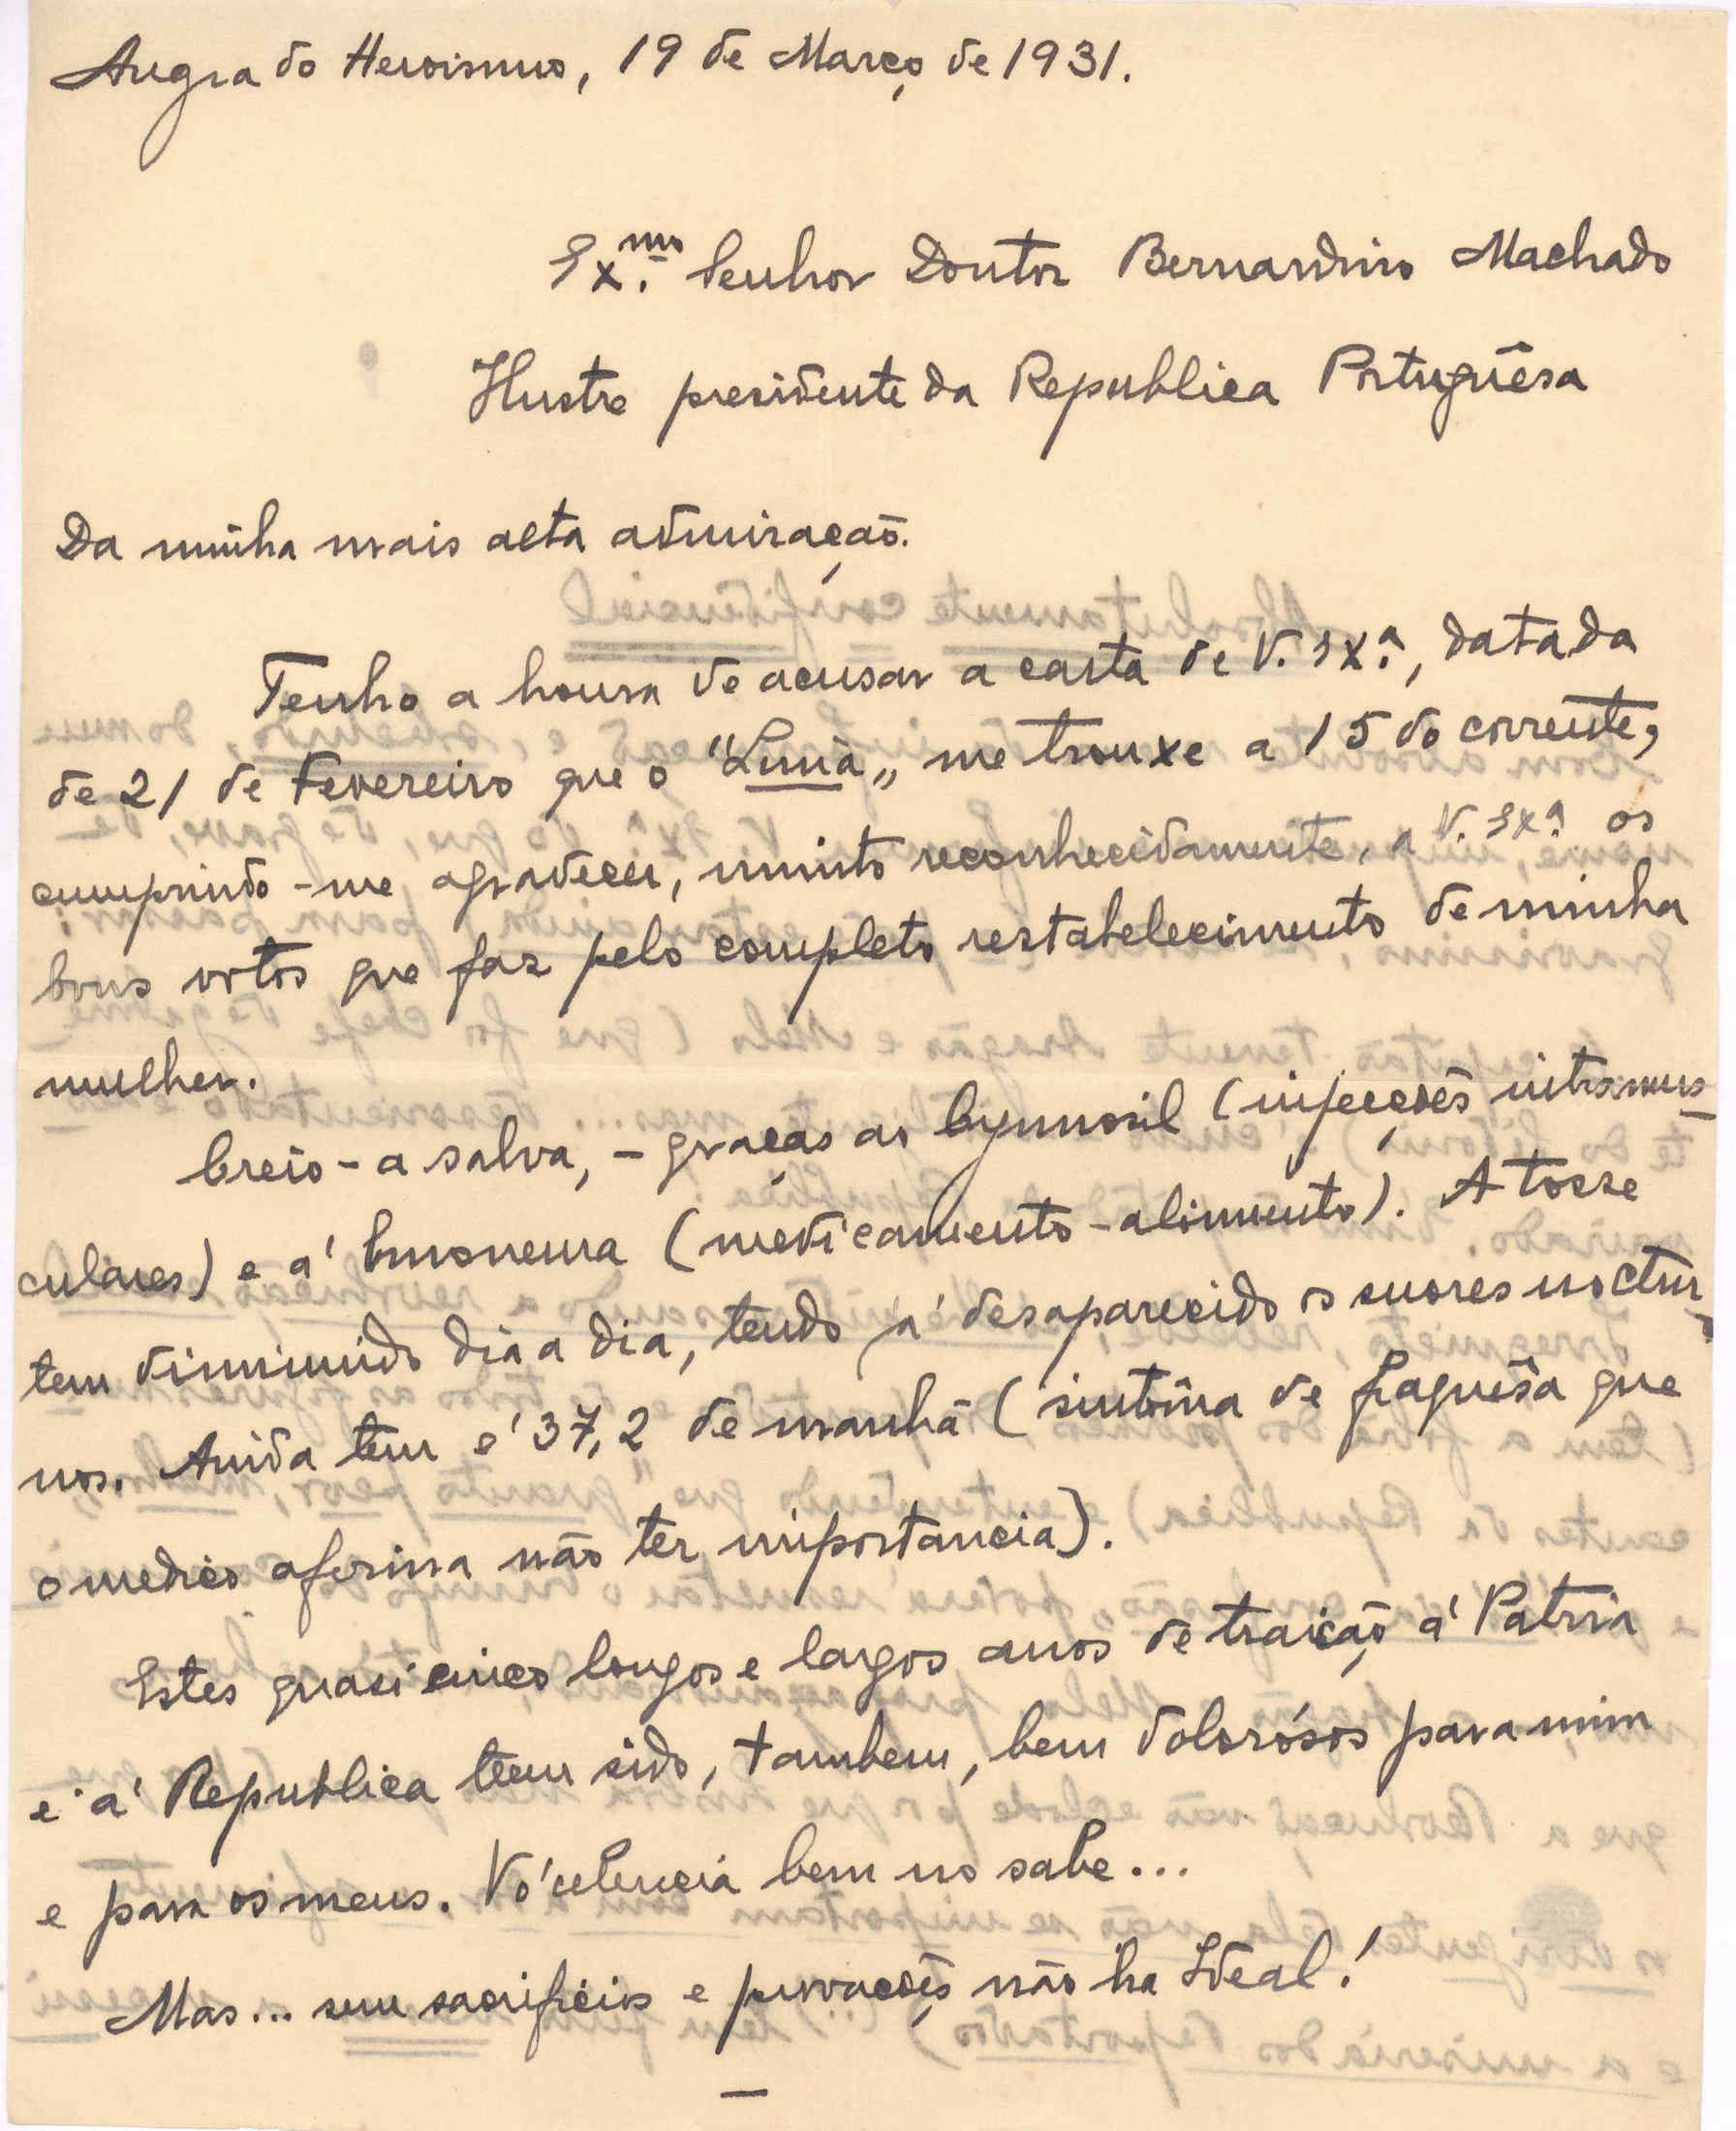 Angra do Heroismo, 19 de Março de 1931.
Ex.mo Senhor Doutor Bernardino Machado
Ilustre presidente da Republica Portuguêsa
Da minha mais alta admiração.
Tenho a honra de acusar a carta de V. Exª., datada
de 21 de Fevereiro que o "Lima„ me trouxe a 15 do corrente,
cumprindo-me agradecer, muito reconhecidamente, a V. Exª. os
bons votos que faz pelo completo restabelecimento de minha
mulher.
Creio-a salva, - graças ao (injeções intramus-
culares) e á (medicamento-alimento). A tosse
tem diminuido dia a dia, tendo já desaparecido os suores noctur-
nos. Ainda tem 37,2 de manhã (sintôma de fraquêsa que
o medico aferma não ter importancia).
Estes quasi cinco longos e largos anos de traição á Patria
e á Republica teem sido, tambem, bem dolorósos para mim
e para os meus. Vó'celencia bem no sabe...
Mas... sem sacrificios e privações não ha Ideal!
—